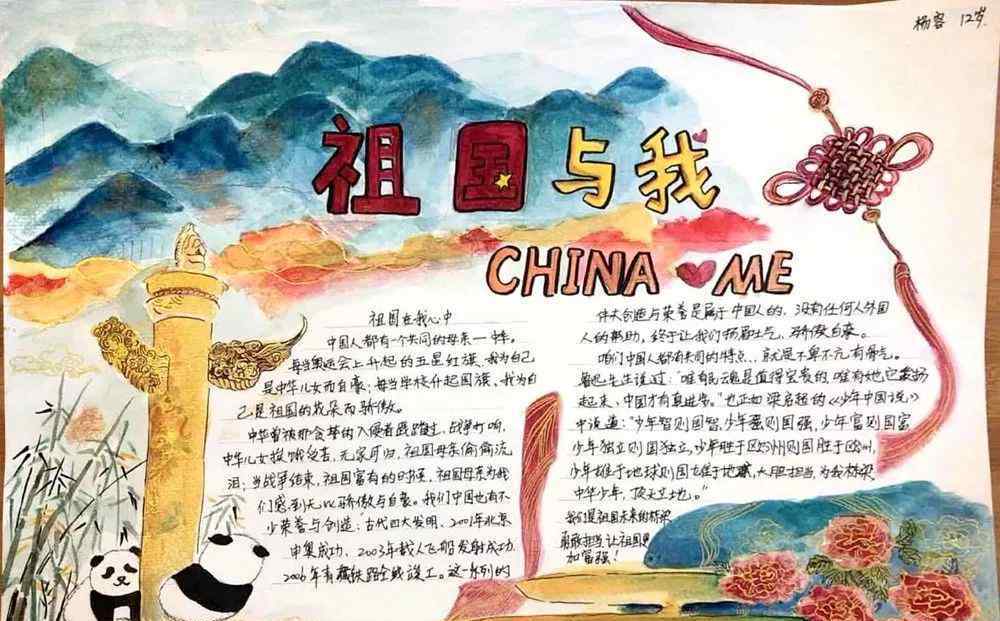 杨容 12岁
祖国与我
CHINA ME
祖国在我心中
中国人都有一个共同的母亲一中华。
每当奥运会上升起的五星红旗,我为自己
是中华儿女而自豪;每当学校升起国旗,我为自
己是祖国的花朵而骄傲。
中华曾被那贪婪的入侵者践踏过,战争打响,
中华儿女挨饿受害,无家可归,祖国母亲偷偷流
泪;当战争结束,祖国富有的时候,祖国母亲为我
们感到无比骄傲与自豪。我们中国也有不
少荣誉与创造:古代四大发明、2001年北京
申奥成功、2003年载人飞船发射成功、
2006年青藏铁路全线竣工。这一系列的
伟大创造与荣誉是属于中国人的,没有任何人外国
人的帮助,终于让我们扬眉吐气,骄傲自豪。
咱们中国人都有共同的特点,就是不卑不亢有骨气。
鲁迅先生说过:"唯有民魂是值得宝贵的,唯有他它发扬
起来,中国才有真进步。"也正如梁启超的《少年中国说》
中说道:"少年智则国智,少年强则国强,少年富则国富
少年独立则国独立,少年胜于欧洲则国胜于欧洲,
少年雄于地球则国雄于地球,大胆担当,为我桥梁
中华少年,顶天立地。"
我们是祖国未来的桥梁
勇敢担当让祖国更
加富强!